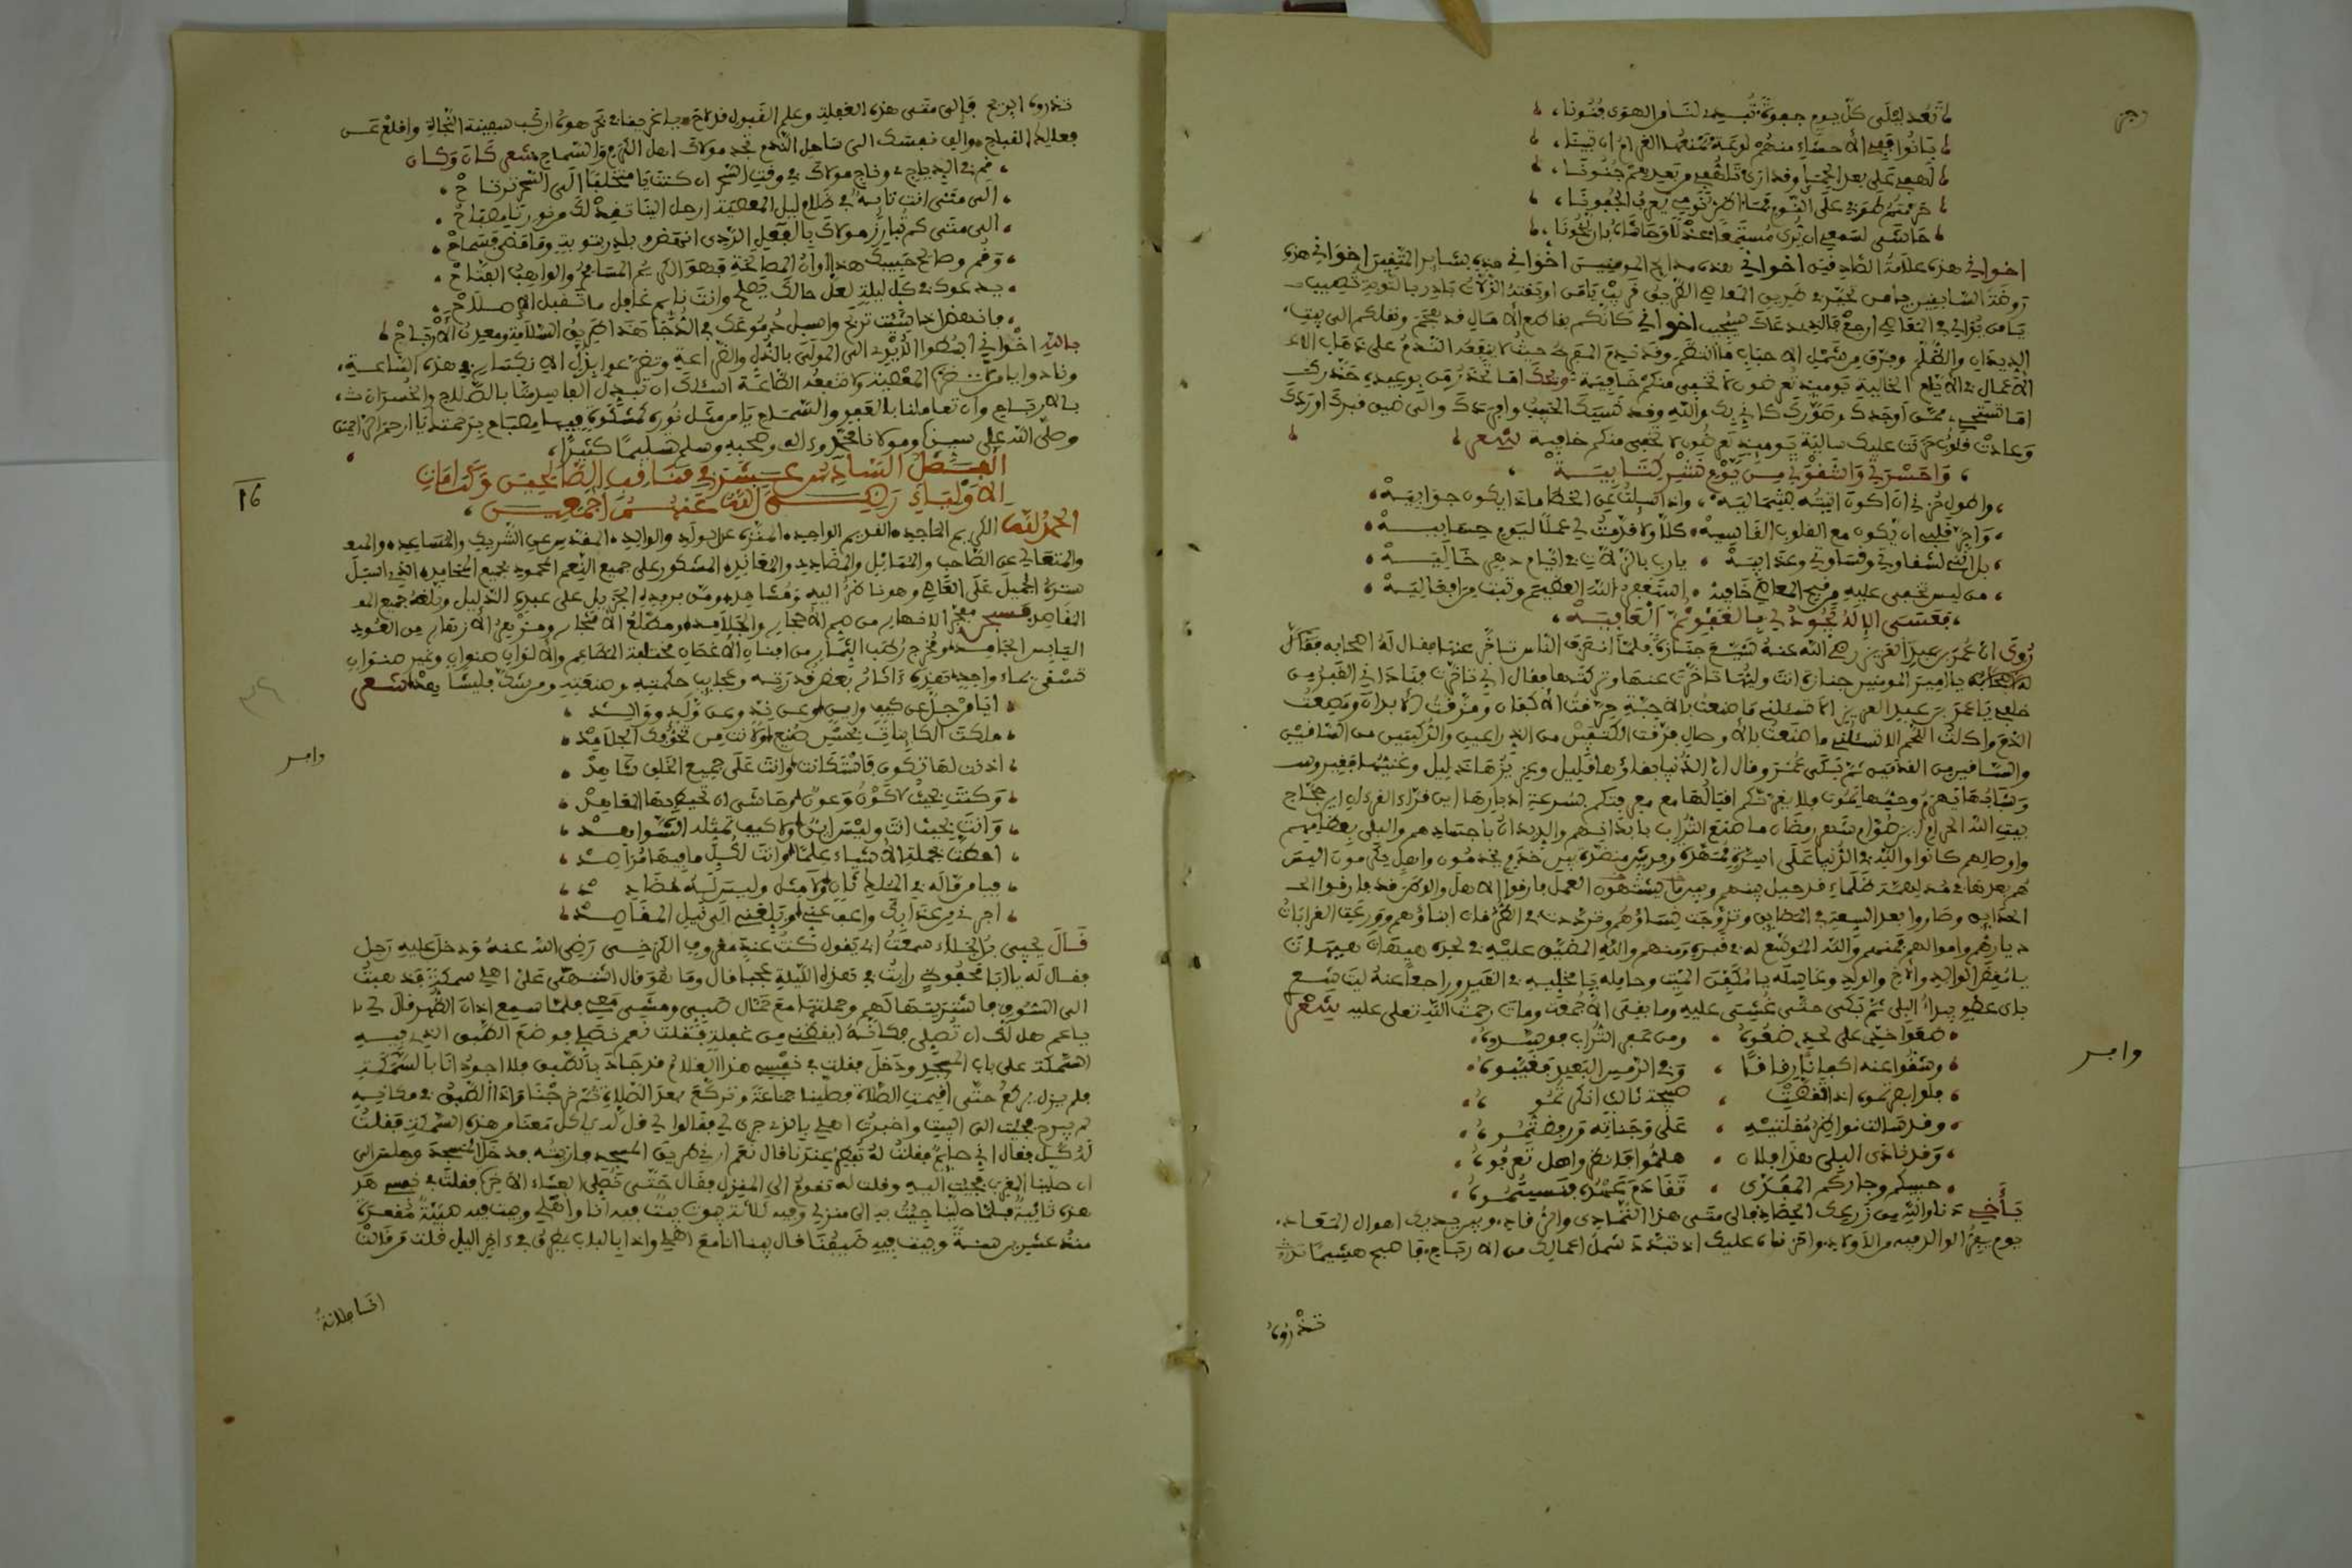 تعد ليلى كل يوم جفوة تبدي لنا من الهوى فنونا
بانوا ففي الأحشاء منهم لوعة يمنعها الغرام ان تبينا
لهفي على بعد الحمى وقد ارى تلهفي من بعدهم جنونا
حرمتم طرفي على النوم
حاشى لسمعي ان يرى مستمعا عذلا وحاشا ان يخونا
اخواني هذه علامة الصادقين اخواني هذه مدايح المومنين اخواني هذه بشاير المتقين اخواني هذه
روضة السابقين يا من تحير في طريق المعاصي الطريق قريب يا من اوبقته الزلات بادر بالتوبة تصيب
يا من توانى في المعاصي ارجع فالى من دعاك مجيب اخواني كانكم بقاطع الآمال قد هجم ونقلكم الى بيت
الديدان والظلم وفرق من شمل الاحباب ما انتظم وقد ندم المفرط حيث لا ينفعه الندم على ذهاب
الاعمال في الايام الخالية يومئذ تعرضون لا تخفى منكم خافية ويحك اما تحذر من يوعيد حذرك
اما تستحي ممن اوجدك وصورك كاني بك والله وقد نسيك الحبيب وافردك والى ضيق قبرك اوردك
وعادت قلوب حزنت عليك سالية يومئذ تعرضون لا تخفى منكم خافية شعر
واحسرتي واشقوتي من يوم نشر كتابيه
واطول حزني ان اكون اتيته بشماليه واذا سئلت عن الخطا ماذا يكون جوابيه
واحر قلبي ان يكون مع القلوب القاسيه كلا ولا قدمت لي عملا ليوم حسابيه
بل انني لشقاوتي وقساوتي وعذابيه بارزت بالزلات في ايام دهر خاليه
من ليس تخفى عليه من قبح المعاصي خافيه استغفر الله العظيم وتبت من افعاليه
فعسى الاله يجود لي بالعفو ثم العافيه
روي ان عمر بن عبد العزيز رضي الله عنه شيع جنازة فلما انصرف الناس تاخر عنها فقال له اصحابه
يا امير المومنين جنازة انت وليها تاخرت عنها وتركتها فقال اني تاخرت فناداني القبر من
خلفي يا عمر بن عبد العزيز الا تسئلني ما صنعت بالاحبة حرقت الاكفان ومزقت الابدان ومصصت
الدم واكلت اللحم الا تسئلني ما صنعت بالاوصال فرقت الكتفين من الذراعين والركبتين من الساقين
والساقين من القدمين ثم بكى عمر وقال ان الدنيا بقاؤها قليل وعزيزها ذليل وغنيها فقير
وشابها يهرم وحيها يموت فلا يغرنكم اقبالها مع معرفتكم بسرعة ادبارها اين قراء القرءان اين حجاج
بيت الله الحرام اين صوام شهر رمضان ما صنع التراب بابدانهم والديدان باجسادهم والبلى بعظامهم
واوصالهم كانوا والله في الدنيا على اسرة ممهدة وفرش منضدة بين خدم يخدمون واهل يكرمون اليس
هم بعدها في مدلهمة ظلماء قد حيل بينهم وبين ما يشتهون العمل فارقوا الاهل والوطن قد فارقوا
الحدايق وصاروا بعد السعة في المضايق وتزوجت نساؤهم وترددت في الطرقات ابناؤهم وورثت القرابات
ديارهم واموالهم فمنهم والله الموسع له في قبره ومنهم والله المضيق عليه في لحده هيهات هيهات
يا مغمض الوالد والاخ والولد وغاسله يا مكفن الميت وحامله يا مخليه في القبر وراجعا عنه ليت شعري
باي عضو يبدأ البلى ثم بكى حتى غشي عليه وما بقى الا جمعة ومات رحمت الله تعلى عليه شعر
ضعوا خدي على لحدي ضعوه ومن عفر التراب فوسدوه
وشقوا عنه اكفانا رقاقا وفي الرمس البعيد فغيبوه
فلو ابصرتموه اذا تقضت صبيحة ثالث انكرتموه
وقد سالت نواظر مقلتيه على وجناته فرفضتموه
وقد نادى البلى هذا فلان هلموا فانظروا هل تعرفوه
حبيبكم وجاركم المفدى تقادم عهده فنسيتموه
يا اخي دنا والله من زرعك الحصاد فالى متى هذا التمادي والرقاد وبين يديك اهوال المعاد
يوم يفر الوالد فيه من الاولاد واحزناه عليك اذ تبدد شمل اعمالك من الارتياح فاصبح هشيما
تذروه
تذروه الرياح فالى متى هذه الغفلة وعلم القبول قد لاح يا غريقا في بحر هواه اركب سفينة النجاة واقلع عن
فعالك القباح والق نفسك الى ساحل الندم تجد مولاك اهل الكرم والسماح شعر كان وكان
قم في الدياجي وناج مولاك في وقت السحر ان كنت يا متخلفا الى السحر ترتاح
الى متى انت تايه في ظلام ليل المعصية ارحل الينا تفد لك من نورنا مصباح
الى متى كم تبارز مولاك بالفعل الردي انهض وبادر بتوبة وما قضي قسماح
وقم وصالح حبيبك هذا اوان المصالحة فهو الكريم المسامح والواهب الفتاح
يدعوك في كل ليلة لعل حالك يصلح وانت نايم غافل ما تقبل الاصلاح
فانهض اذا شئت تربح واسبل دموعك في الدجا هذا طريق السلامة ومعدن الارباح
بالله اخواني ابسطوا الايدي الى المولى بالذل والضراعة وتضرعوا بذل الانكسار في هذه الساعة
ونادوا يا من لا تضره المعصية ولا تنفعه الطاعة اسئلك ان تبدل الفاسد منا بالصلاح والخسران
بالارباح وان تعاملنا بالعفو والسماح يا من مثل نوره كمشكوة فيها مصباح برحمتك يا ارحم الراحمين
وصلى الله على سيدنا ومولانا محمد وءاله وصحبه وسلم تسليما كثيرا
الفصل السادس عشر في مناقب الصالحين وكرامات
الاولياء رضي الله عنهم اجمعين
16
الحمد لله الكريم الماجد القديم الواحد المنزه عن الولد والوالد المقدس عن الشريك والمساعد
والمتعالي عن الصاحب والمماثل والمضادد والمعاند المشكور على جميع النعم المحمود بجميع المحامد الذي اسبل
ستره الجميل على العاصي وهو ناظر اليه ومشاهد ومن بمزيد الجزيل على عبده الذليل وبلغه جميع
المقاصد مفجر الانهار من صم الاحجار والجلامد ومطلع الاشجار ومزهر الازهار من العود
اليابس الجامد ومخرج رطب الثمار من افنان الاغصان مختلفة المطاعم والالوان صنوان وغير صنوان
تسقى بماء واحد فهذه ءاثار بعض قدرته وعجايب حكمته وصنعته ومن شك فليشاهد شعر
٣٤٦
ايا من جل عن كيف واين وعن ند وعن ولد ووالد
ملكت الكاينات بحسن صنع ولانت من تخوفك الجلامد
اذنت لها تكون فاستكانت وانت على جميع الخلق شاهد
وكنت بحيث لا كون وعون وحاشى ان تحيط بها المعاهد
وانت بحيث انت وليس اين ولا كيف تمثله الشواهد
احطت بجملة الاشياء علما وانت لكل ما فيها مراصد
فيا من ما له في الملك ثان ولا مثل وليس له مضادد
اجرني من عذابك واعف عني وبلغني الى نيل المقاصد
قال يحيى بن الجلاء سمعت ابي يقول كنت عند معروف الكرخي رضي الله عنه فدخل عليه رجل
فقال له يا ابا محفوظ رايت في هذه الليلة عجبا قال وما هو قال اشتهى علي اهلي سمكة فذهبت
الى السوق فاشتريتها لهم وحملتها مع حمال صبي ومشى معي فلما سمع اذان الظهر قال لي
يا عم هل لك ان تصلي فكانه ايقظني من غفلة فقلت نعم نصلي فوضع الطبق الذي فيه
السمكة على باب المسجد ودخل فقلت في نفسي هذا الغلام قد جاد بالطبق فلا اجود انا بالسمكة
فلم يزل يركع حتى اقيمت الصلاة فصلينا جماعة وتركع بعد الصلاة ثم خرجنا واذا الطبق في مكانه
لم يبرح فجئت الى البيت واخبرت اهلي بالذي جرى لي فقالوا لي قل له ياكل معنا من هذه السمكة فقلت
له كل فقال اني صايم فقلت له تفطر عندنا قال نعم ارني طريق المسجد فاريته فدخل المسجد وجلس الى
ان صلينا المغرب فجئت اليه وقلت له تقوم الى المنزل فقال حتى نصلي العشاء الاخرة فقلت في نفسي
هذه ثانية فلما صلينا جئت به الى منزلي وفيه ثلاثة بيوت بيت فيه انا واهلي وبيت فيه صبية مقعدة
منذ عشرين سنة وبيت فيه ضيفنا قال فبينا انا مع اهلي واذا بالباب يطرق في ءاخر الليل قلت من قالت
انا فلانة